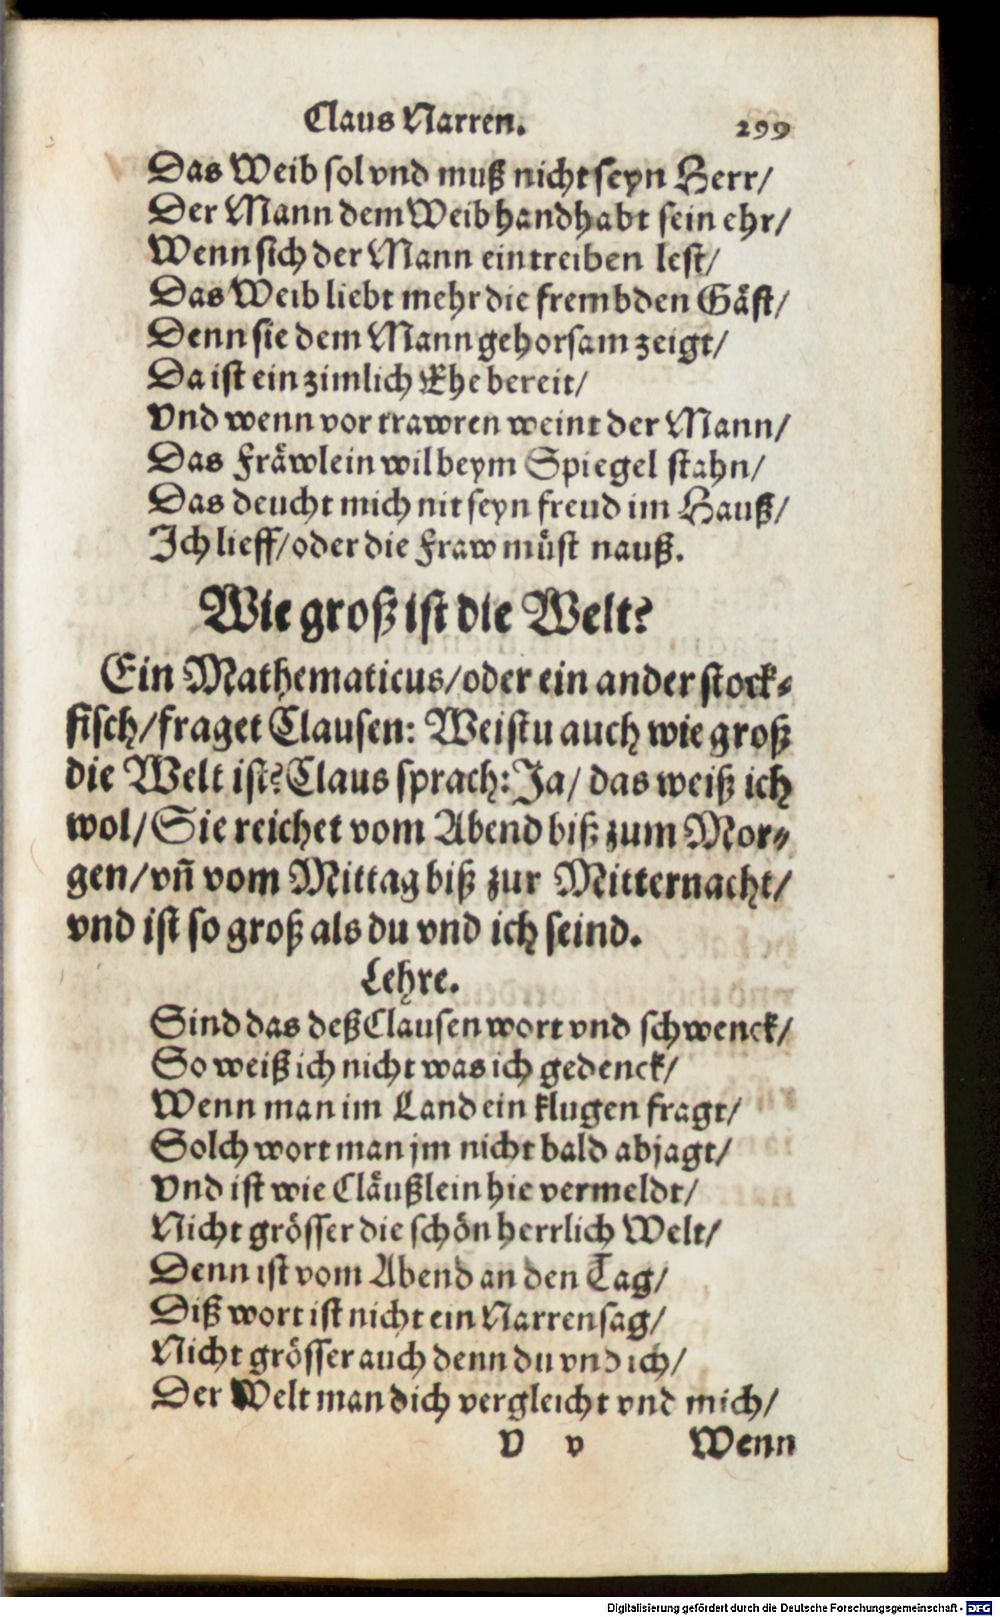 Claus Narren. 299
Das Weib sol vnd muß nicht seyn Herr/
Der Mann dem Weib handhabt sein ehr/
Wenn sich der Mann eintreiben lest/
Das Weib liebt mehr die frembden Gäst/
Denn sie dem Mann gehorsam zeigt/
Da ist ein zimlich Ehe bereit/
Vnd wenn vor trawren weint der Mann/
Das Fräwlein wil beym Spiegel stahn/
Das deucht mich nit seyn freud im Hauß/
Ich lieff/oder die Fraw müst nauß.
Wie groß ist die Welt?
Ein Mathematicus/oder ein ander stock-
fisch/fraget Clausen: Weistu auch wie groß
die Welt ist? Claus sprach: Ja/ das weiß ich
wol/Sie reichet vom Abend biß zum Mor-
gen/vñ vom Mittag biß zur Mitternacht/
vnd ist so groß als du vnd ich seind.
Lehre.
Sind das deß Clausen wort vnd schwenck/
So weiß ich nicht was ich gedenck/
Wenn man im Land ein klugen fragt/
Solch wort man jm nicht bald abjagt/
Vnd ist wie Cläußlein hie vermeldt/
Nicht grösser die schön herrlich Welt/
Denn ist vom Abend an den Tag/
Diß wort ist nicht ein Narrensag/
Nicht grösser auch denn du vnd ich/
Der Welt man dich vergleicht vnd mich/
V v Wenn
Digitalisierung gefördert durch die Deutsche Forschungsgemeinschaft - DFG